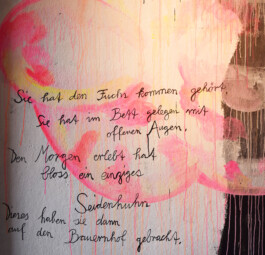 Sie hat den Fuchs kommen gehört,
Sie hat im Bett gelegen mit
offenen Augen.
Den Morgen erlebt hat
bloss ein einziges
Seidenhuhn
Dieses haben sie dann
auf den Bauernhof gebracht.